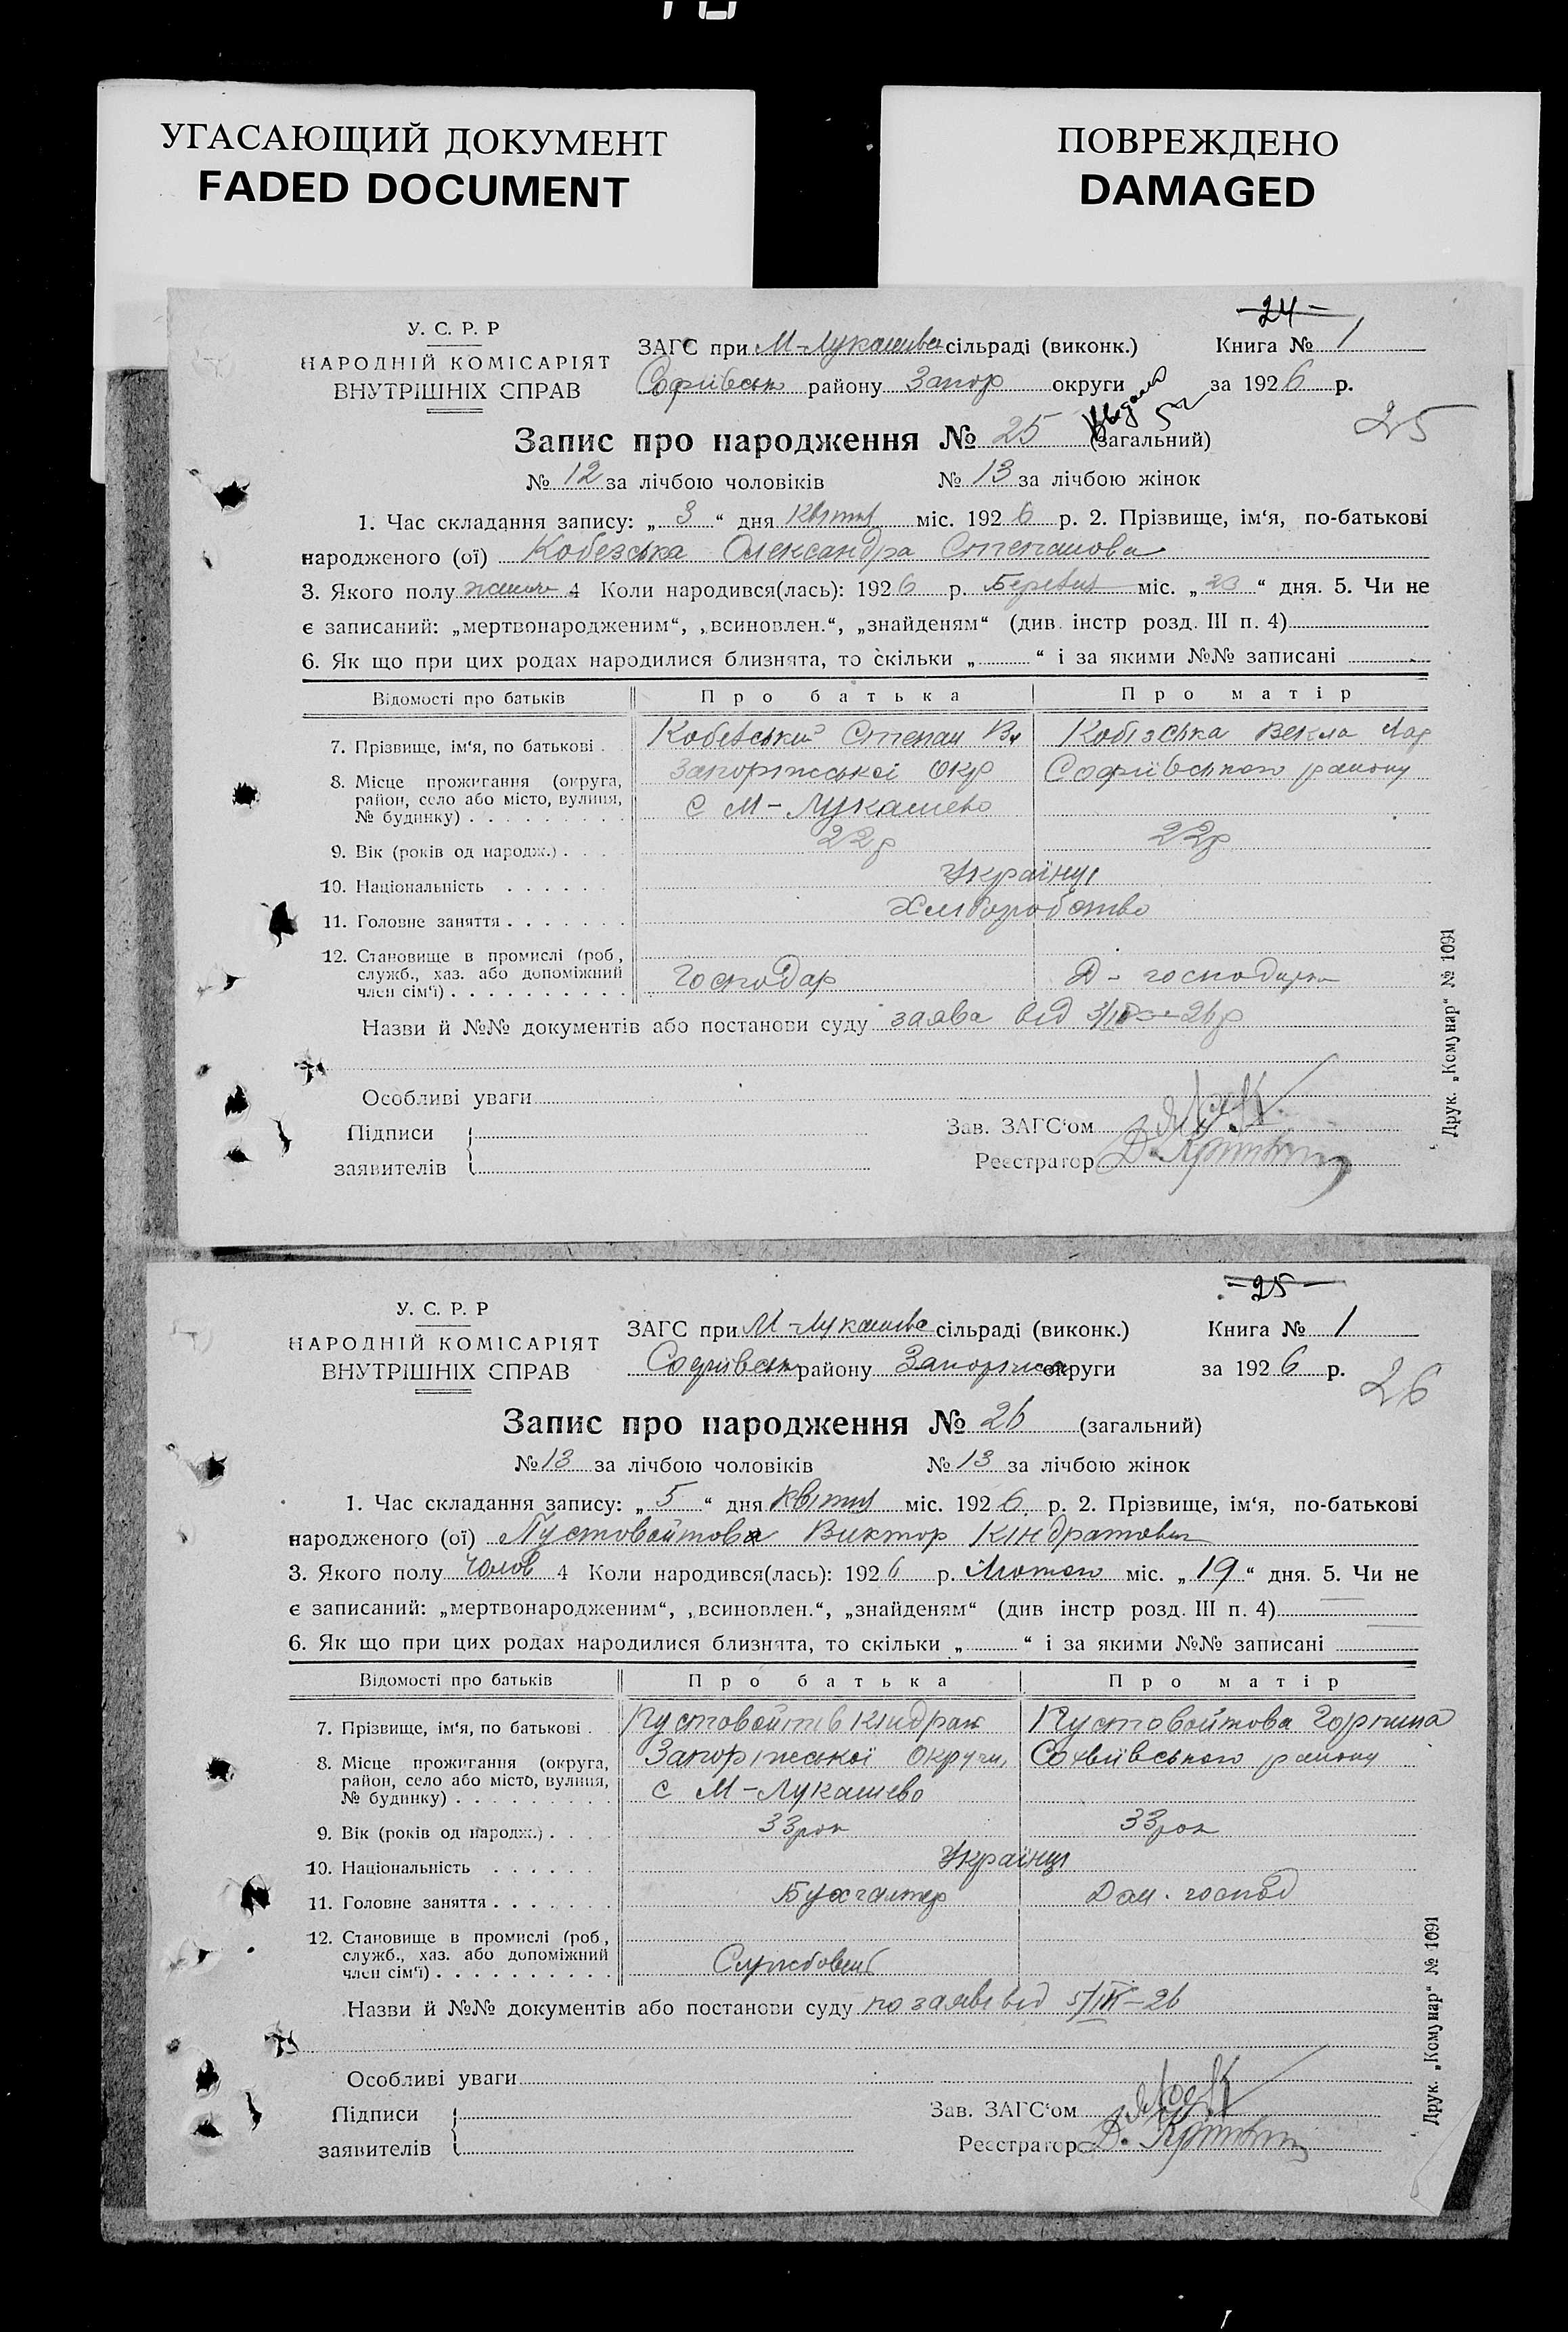 УГАСАЮЩИЙ ДОКУМЕНТ
FADED DOCUMENT
ПОВРЕЖДЕНО
DAMAGED
24
У. С. Р. Р
НАРОДНІЙ КОМІСАРІЯТ
ВНУТРІШНІХ СПРАВ
ЗАГС при М-Лукашева сільраді (виконк.) Книга № 1
Софіївськ району Запор округи за 1926 р.
25
Запис про народження № 25 (загальний)
№ 12 за лічбою чоловіків № 13 за лічбою жінок
1. Час складання запису: „ 3 “ дня Квітня міс. 1926 р. 2. Прізвище, ім‘я, по-батькові
народженого (ої) Кобезська Олександра Степанова
3. Якого полу жіноч 4 Коли народився(лась): 1926 р. Березня міс. „ 23 “ дня. 5. Чи не
є записаний: „мертвонародженим“, „всиновлен.“, „знайденям“ (див. інстр розд. III п. 4)
6. Як що при цих родах народилися близнята, то скільки „ “ і за якими №№ записані
Відомості про батьків Про батька Про матір
7. Прізвище, ім‘я, по батькові . Кобезський Степан Кобізська Векла
8. Місце прожигання (округа, Запоріжської Окр Софиівського району
район, село або місто, вулиця, с М-Лукашево
№ будинку)
9. Вік (років од народж.) 22р 22р
10. Національність Українці
11. Головне заняття Хліборобство
12. Становище в промислі (роб.,
служб., хаз. або допоміжний
член сім‘ї) Господар Д-господарка
Назви й №№ документів або постанови суду заява від 26р
Особливі уваги
Підписи Зав. ЗАГС‘ом
заявителів Реєстратор
Друк. „Комунар“ № 1091
25
У. С. Р. Р
НАРОДНІЙ КОМІСАРІЯТ
ВНУТРІШНІХ СПРАВ
ЗАГС при М-Лукашева сільраді (виконк.) Книга № 1
Софіївськ району Запоріжськ округи за 1926 р.
26
Запис про народження № 26 (загальний)
№ 13 за лічбою чоловіків № 13 за лічбою жінок
1. Час складання запису: „ 5 “ дня квітня міс. 1926 р. 2. Прізвище, ім‘я, по-батькові
народженого (ої) Пустовойтова Виктор Кіндратович
3. Якого полу чолов 4 Коли народився(лась): 1926 р. Лютого міс. „ 19 “ дня. 5. Чи не
є записаний: „мертвонародженим“, „всиновлен.“, „знайденям“ (див інстр розд. III п. 4)
6. Як що при цих родах народилися близнята, то скільки „ “ і за якими №№ записані
Відомості про батьків Про батька Про матір
7. Прізвище, ім‘я, по батькові . Пустовойтів Кіндрат Пустовойтова Горпина
8. Місце прожигання (округа, Запоріжської Округи, Софиівського району
район, село або місто, вулиця, с М-Лукашево
№ будинку)
9. Вік (років од народж.) 33рок 33рок
10. Національність Українці
11. Головне заняття Бухгалтер Дом. господ
12. Становище в промислі (роб.,
служб., хаз. або допоміжний
член сім‘ї) Службовець
Назви й №№ документів або постанови суду по заяві від 5/IV-26
Особливі уваги
Підписи Зав. ЗАГС‘ом
заявителів Реєстратор
Друк. „Комунар“ № 1091